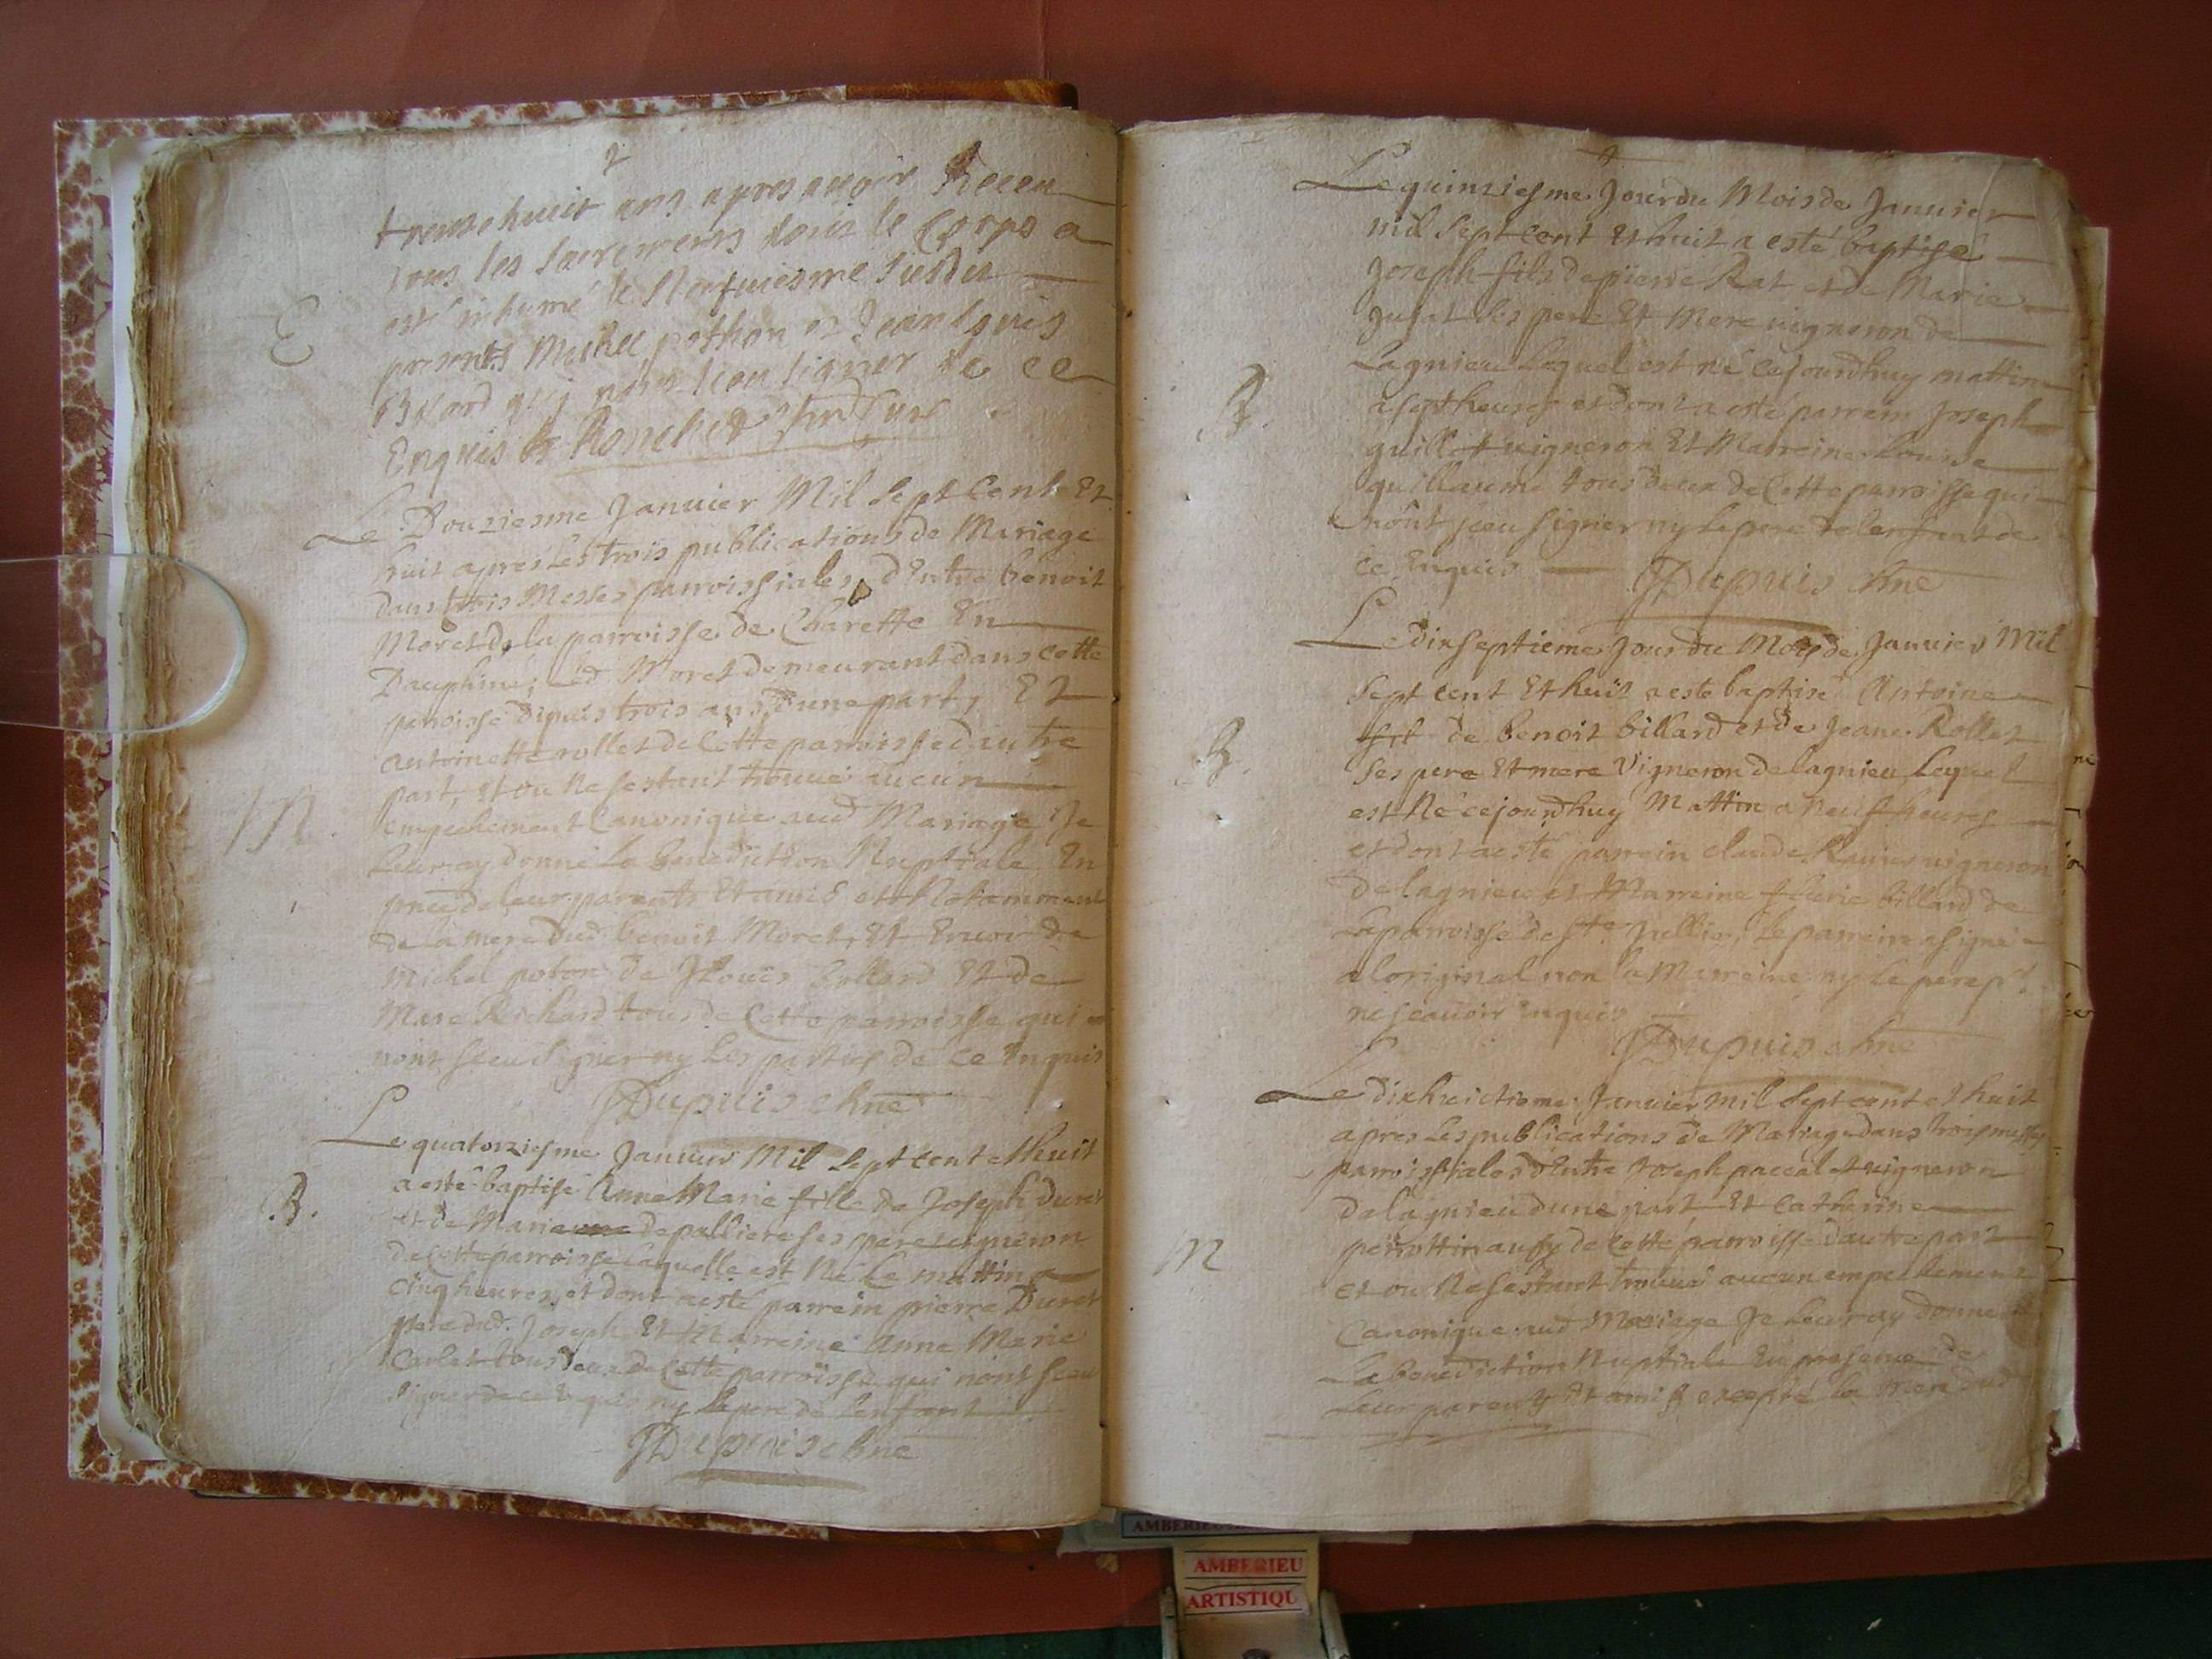 2
trente huict ans apres avoir Receu
tous les sacremens dont le Corps a
esté inhumé le Neufuiesme Susdit
E
presents Michel pothon et Jean Louis
Billard qui nont sceu signer de ce
Enquis
Le Douziesme Januier Mil sept Cent Et
huit apres les trois publications de Mariage
dans trois Messes parroissiales d'Entre benoit
Moret de la parroisse de Charette En
Dauphiné, led Moret demeurant dans cette
parroisse depuis trois ans d'une part, Et
antoinette rollet de Cette parroisse d'autre
part, et ou Ne sestant trouué aucun
M.
empechement Canonique aud Mariage Je
Leur ay donné La benediction Nuptiale En
pnce de leur parents Et amis et Notamment
de la mere dud benoit Moret, Et Encor de
Michel poton de Jlouis billard Et de
Marc Richard tous de Cette parroisse qui
nont sceu signer ny Les parties de Ce Enquis
JDupuis chne
Le quatorziesme Januier Mil Sept cent et huit
a esté baptisé Anne Marie fille de Joseph Duret
B.
et de Marie de palliere ses pere vigneron
de Cette parroisse Laquelle est Né Le mattin a
Cinq heures, et dont a esté parrein pierre Duret
pere dud. Joseph Et Marreine Anne Marie
Carlet tous deux de Cette parroisse qui nont sceu
signer de ce Enquis ny Le pere de Lenfant
JDupuis chne
Le quinziesme Jour du Mois de Januier
mil Sept cent Et huit a esté baptisé
Joseph fils de pierre Rat et de Marie
Jusat ses pere Et Mere uigneron de
Lagnieu Lequel est né Cejourdhuy mattin
B.
a sept heures et dont a esté parrein Joseph
guillot uigneron Et Marreine Louise
guillaume tous deux de Cette parroisse qui
nont sceu signer ny Le pere de lenfant de
ce Enquis JDupuis chne
Le dixseptieme Jour du Mois de Januier Mil
Sept cent Et huit a esté baptisé Antoine
fils de benoit billard et de Jeane Rollet
B.
ses pere Et mere Vigneron de lagnieu Lequel
est Né cejourdhuy Mattin a Neuf heures
et dont a esté parrein claude uigneron
de lagnieu et Marreine fleurie billard de
La parroisse de Ste Jullie, Le parrein a signé
a loriginal non la Marreine ny Le pere pr
ne scauoir Enquis
JDupuis chne
Le dixhuictieme Januier mil Sept cent et huit
apres Les publications de Mariage dans trois messes
parroissiales d'Entre Joseph paccalet uigneron
de lagnieu dune part Et Catherine
M
perrottin aussy de Cette parroisse d'autre part
et ou Ne sestant trouué aucun empechement
Canonique aud Mariage Je Leur ay donné
La benediction Nuptiale En presence de
Leur parents Et amis excepté la Mere dud
AMBERIEU
AMBERIEU
ARTISTIQU